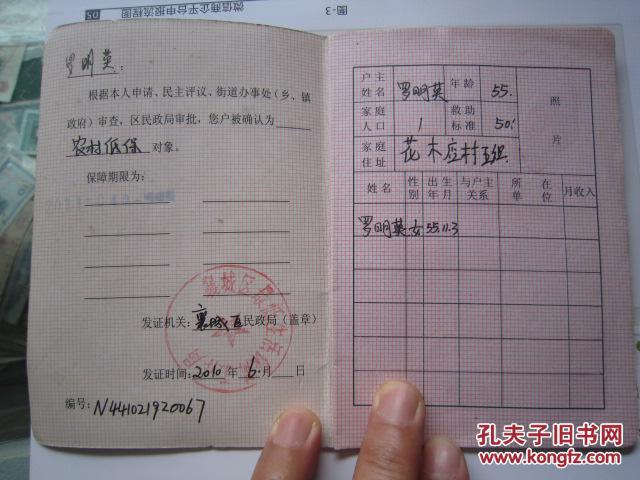 图-3
微信商企平台申报流程图
05
罗明英：
根据本人申请、民主评议、街道办事处（乡、镇
政府）审查，区民政局审批，您户被确认为
农村低保 对象。
保障期限为：
发证机关：襄城区民政局（盖章）
发证时间：2010 年 6 月 日
编号：N441021920067
户主姓名 罗明英 年龄 55. 照片
家庭人口 1 救助标准 50.
家庭住址 花木应村五组
姓名 性别 出生年月 与户主关系 所在单位 月收入
罗明英 女 55.11.3
孔夫子旧书网
www.kongfz.com